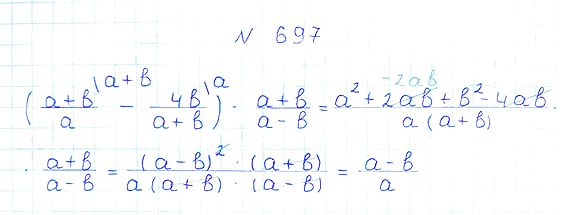 N 697
-2ab
( (a+b)/a \a+b - 4b/(a+b) \a ) · (a+b)/(a-b) = (a² + 2ab + b² - 4ab)/(a(a+b)) .
· (a+b)/(a-b) = ((a-b)² · (a+b))/(a(a+b) · (a-b)) = (a-b)/a